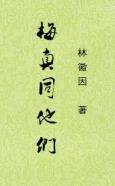 梅真同他們
林徽因 著